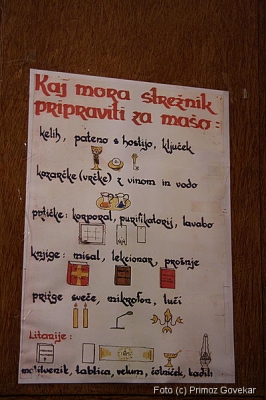 Kaj mora strežnik
pripraviti za mašo:
kelih, pateno s hostijo, ključek
kozarčke (vrčke) z vinom in vodo
prtičke: korporal, purifikatorij, lavabo
knjige: misal, lekcionar, prošnje
prižge sveče, mikrofon, luči
Litanije:
molitvenik, tablica, velum, čolniček, kadilo
Foto (c) Primoz Govekar